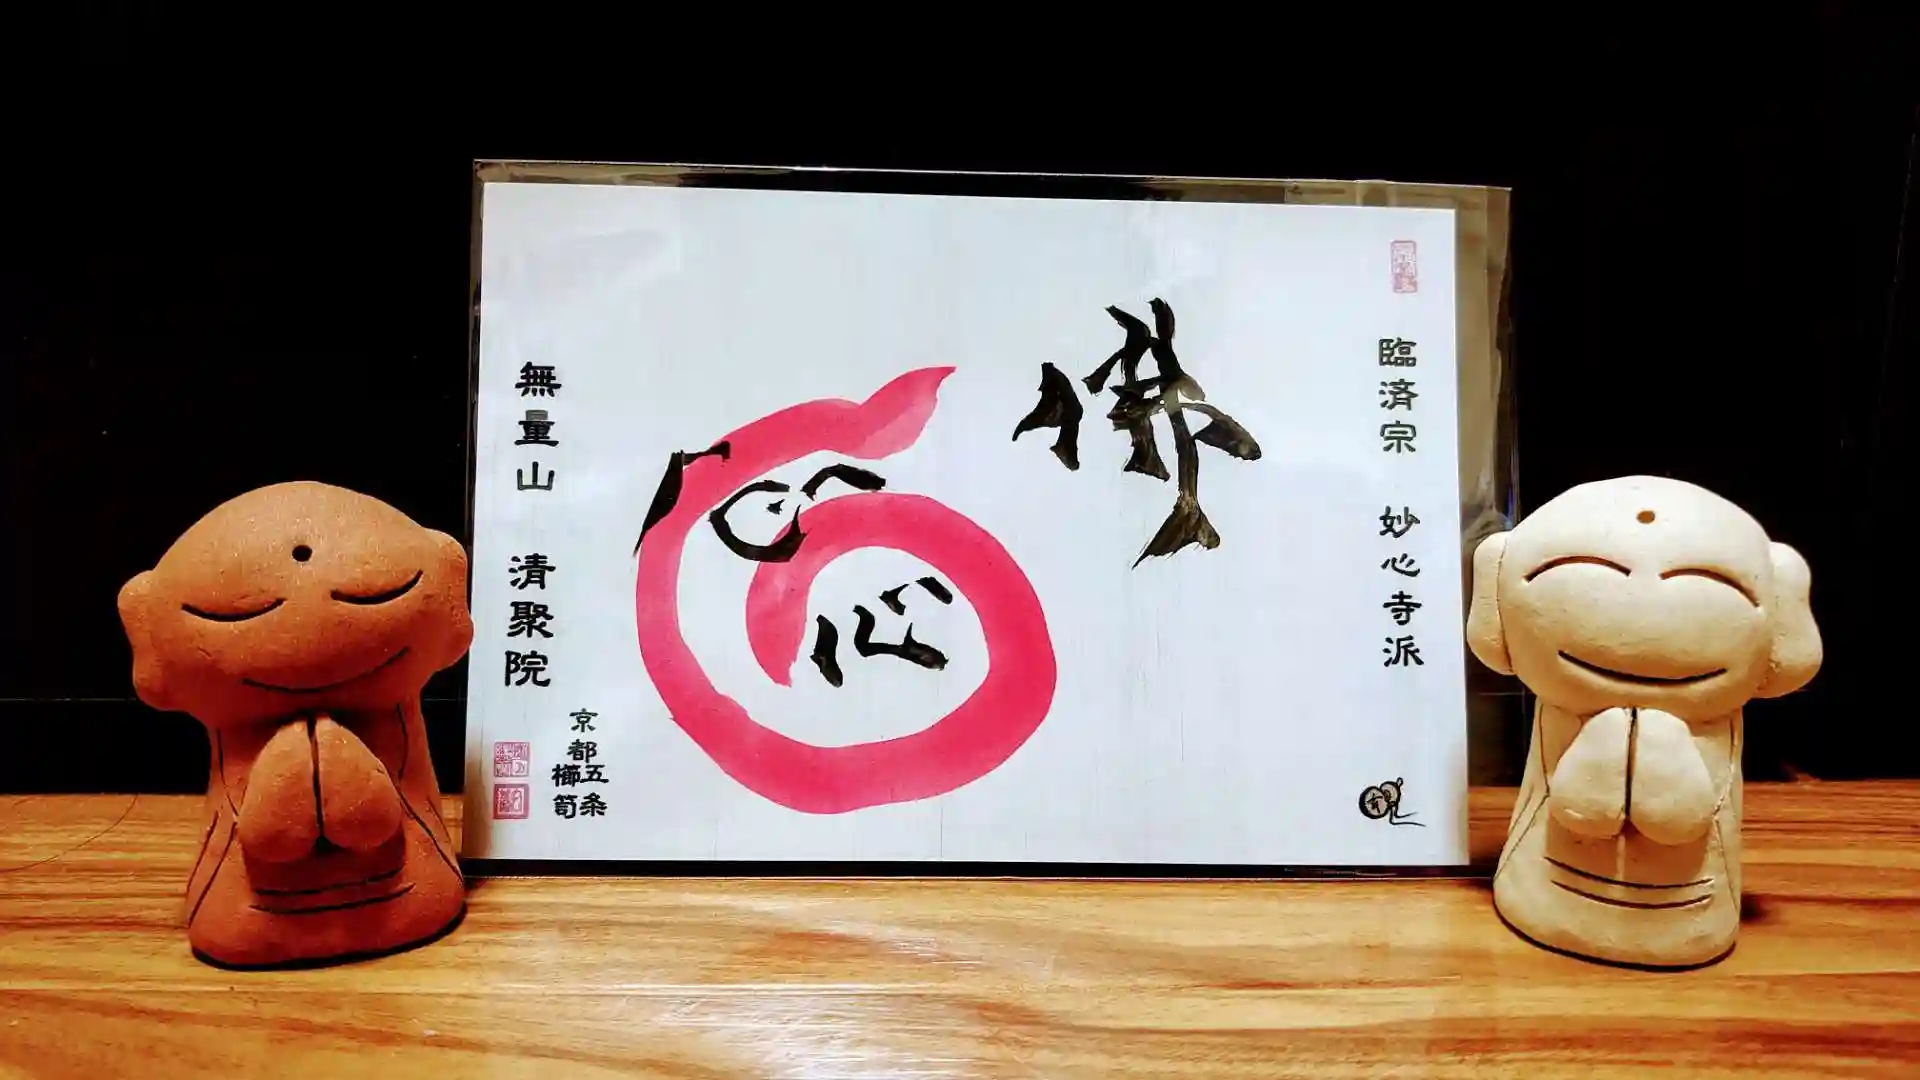 臨済宗 妙心寺派
佛
心
無量山 清聚院
京都五条
櫛笥